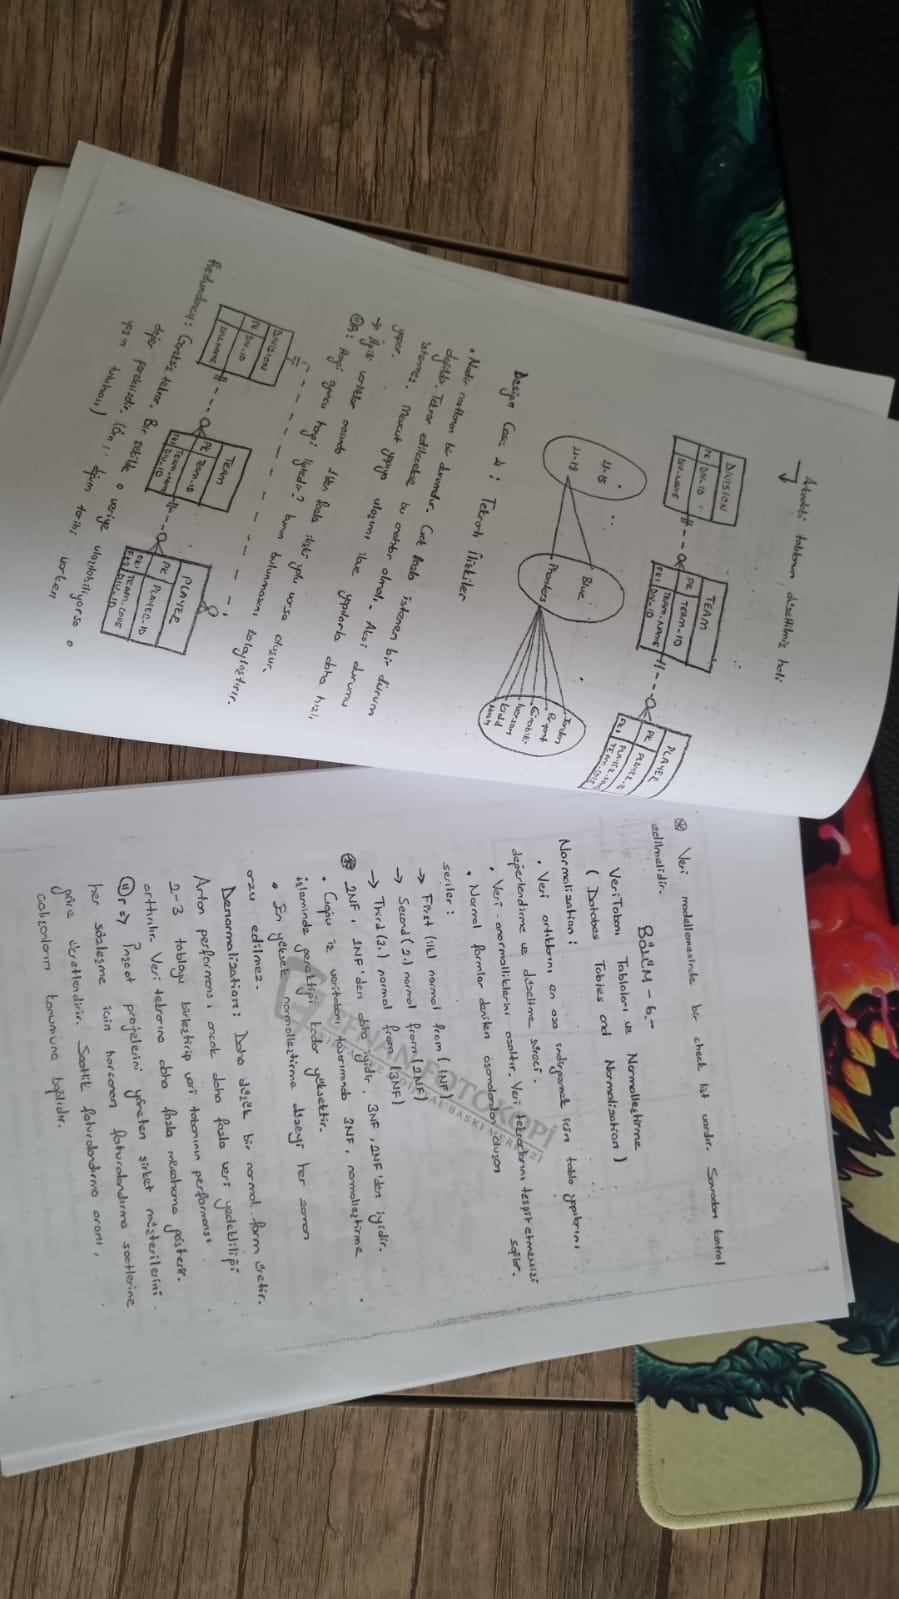 ↳ Alttaki tablonun düzeltilmiş hali
DIVISION
PK DIV-ID
DIV-NAME
TEAM
PK TEAM-ID
TEAM-NAME
FK1 DIV-ID
PLAYER
PK PLAYER-ID
PLAYER-
FK1 TEAM-
U-15
U-13
Blue
Jordan
Design Case 4: Tekrarlı İlişkiler
• Nadir rastlanan bir durumdur. Çok fazla istenen bir durum
değildir. Tekrar edilecekse bu anahtar olmalı. Aksi durumu
istenmez. Mevcut yapıya ulaşımı ilave yapılarla daha hızlı
yapar.
→ İlgili varlıklar arasında 1'den fazla ilişki yolu varsa oluşur.
Ör: Hangi oyuncu hangi ligdedir? bunun bulunmasını kolaylaştırır.
DIVISION
PK DIV-ID
DIV-NAME
TEAM
PK TEAM-ID
TEAM-NAME
FK1 DIV-ID
PLAYER
PK PLAYER-ID
FK1 TEAM-CODE
FK2 DIV-ID
Redundancy: Gereksiz tekrar. Bir şekilde o veriye ulaşılabiliyorsa o
değer gereksizdir. (Örn: doğum tarihi varken
yaşın tutulması)
⊛ Veri modellemesinde bir check list vardır. Sonradan kontrol
edilmelidir.
BÖLÜM - 6 -
VeriTabanı Tabloları ve Normalleştirme
(Database Tables and Normalization)
Normalization:
• Veri artıklarını en aza indirgemek için tablo yapılarını
değerlendirme ve düzeltme süreci. Veri tekrarlarını tespit etmemizi sağlar.
• Veri anormalliklerini azaltır.
• Normal formlar denilen aşamalardan oluşan
seriler:
→ First (ilk) normal from (1NF)
→ Second (2) normal from (2NF)
→ Third (3.) normal from (3NF)
⊛ 2NF, 1NF'den daha iyidir. 3NF, 2NF'den iyidir.
• Çoğu iş veritabanı tasarımında 3NF, normalleştirme
işleminde gerektiği kadar yüksektir.
• En yüksek normalleştirme düzeyi her zaman
arzu edilmez.
Denormalization: Daha düşük bir normal form üretir.
Artan performans, ancak daha fazla veri yedekliliği
2-3 tabloyu birleştirip veri tabanının performansı
arttırılır. Veri tekrarına daha fazla müsahama gösterir.
Ör => İnşaat projelerini yöneten şirket müşterilerini
her sözleşme için harcanan faturalandırma saatlerine
göre ücretlendirir. Saatlik faturalandırma oranı,
çalışanların konumuna bağlıdır.
FOTOKOPİ
DİJİTAL BASKI MERKEZİ